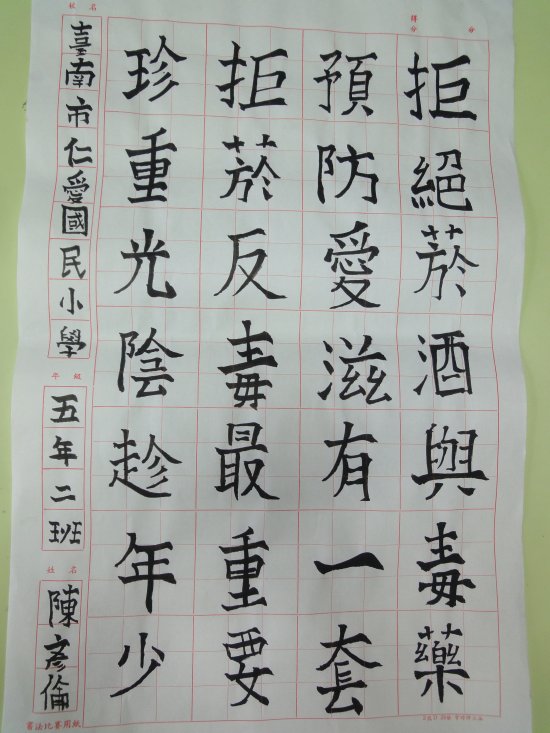 拒絕菸酒與毒藥
預防愛滋有一套
拒菸反毒最重要
珍重光陰趁年少
校名
臺南市仁愛國民小學
年級
五年二班
姓名
陳彥倫
得分 分
書法比賽用紙